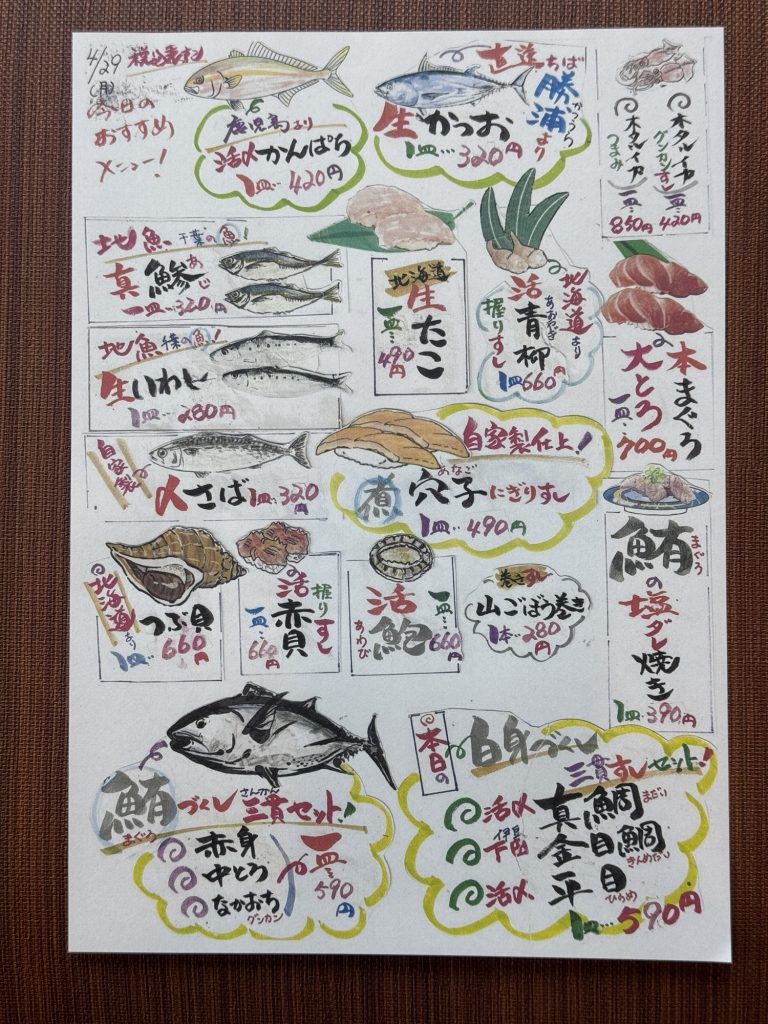 4/29
(月)
今日の
おすすめ
メニュー!
鹿児島より
活〆かんぱち
1皿…420円
直送ちば
勝浦より
かつうら
生かつお
1皿…320円
ホタルイカ
グンカンすし
一皿…420円
ホタルイカ
つまみ
一皿…850円
地魚 千葉の魚!
真鯵
あじ
一皿…320円
地魚 千葉の魚!
生いわし
1皿…280円
北海道
生たこ
一皿…490円
北海道より
活青柳
あおやぎ
握りすし
1皿660円
本まぐろ
大とろ
一皿…700円
自家製
〆さば 1皿…320円
自家製仕上!
煮穴子にぎりすし
あなご
1皿…490円
鮪の塩ダレ焼き
まぐろ
1皿…390円
北海道より
つぶ貝
1皿…660円
握りすし
活赤貝
一皿…660円
活鮑
あわび
一皿…660円
巻きすし
山ごぼう巻き
1本…280円
鮪づくし三貫セット!
まぐろ
さんかん
赤身
中とろ
なかおち
グンカン
一皿…590円
本日の
白身づくし
三貫すしセット!
活〆 真鯛 まだい
伊豆下田 金目鯛 きんめだい
活〆 平目 ひらめ
1皿…590円